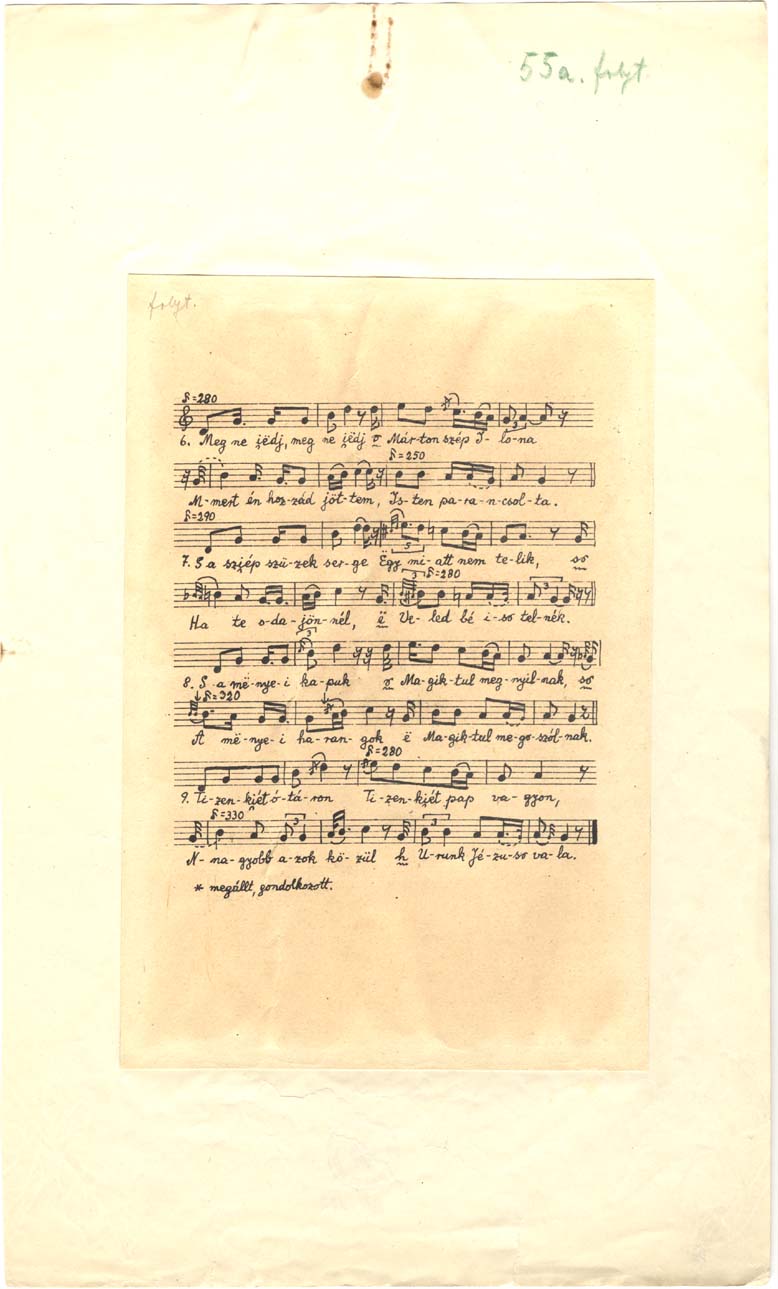 55a. folyt.
folyt.
♪=280
6. Meg ne jëdj, meg ne jëdj o Már-ton szép I-lo-na
♪=250
M-mert én hoz-zád jöt-tem, Is-ten pa-ra-n-csol-ta.
♪=290
7. S a szjép szü-zek ser-ge Ëgy mi-att nem te-lik, so
♪=280
Ha te o-da-jön-nél, ë Ve-led bé i-so tel-nék.
8. S a më-nye-i ka-puk o Ma-gik-tul meg-nyil-nak, so
♪=320
A më-nye-i ha-ran-gok ë Ma-gik-tul me-go-szól-nak.
♪=280
9. Ti-zen-kjét ó-tá-ron Ti-zen-kjét pap va-gyon,
♪=330
N-na-gyobb a-zok kö-zül h U-runk Jé-zu-so va-la.
* megállt, gondolkozott.